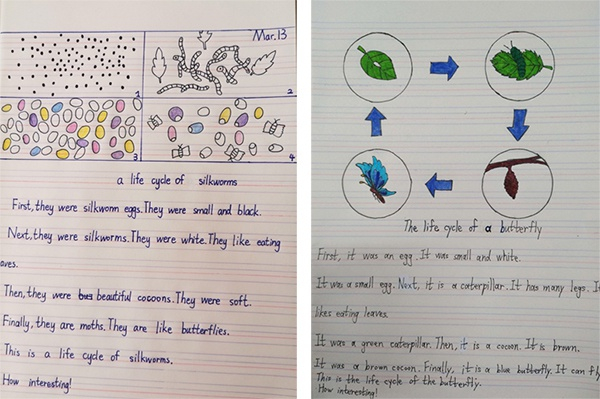 Mar.13
1
2
3
4
a life cycle of silkworms
First, they were silkworm eggs. They were small and black.
Next, they were silkworms. They were white. They like eating
aves.
Then, they were beautiful cocoons. They were soft.
Finally, they are moths. They are like butterflies.
This is a life cycle of silkworms.
How interesting!
The life cycle of a butterfly
First, it was an egg. It was small and white.
It was a small egg. Next, it is a caterpillar. It has many legs. I
likes eating leaves.
It was a green caterpillar. Then, it is a cocoon. It is brown.
It was a brown cocoon. Finally, it is a blue butterfly. It can fly
This is the life cycle of the butterfly.
How interesting!